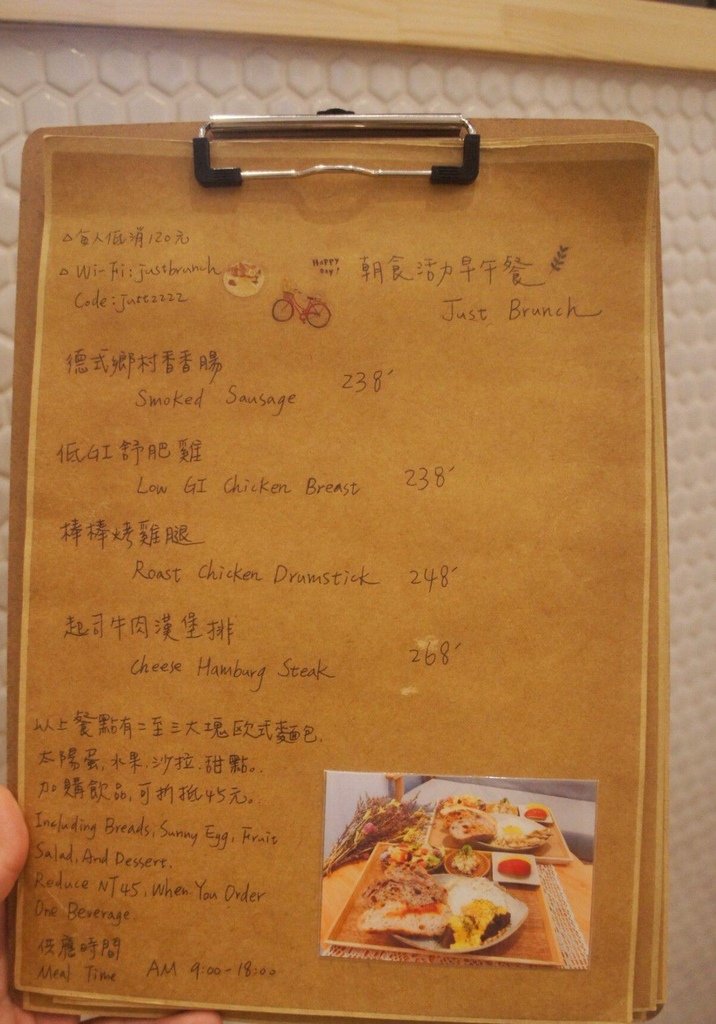 △每人低消120元
△ Wi-Fi: justbrunch
Code: just2222
HAPPY
DAY!
朝食活力早午餐
Just Brunch
德式鄉村香香腸
Smoked Sausage 238
低GI舒肥雞
Low GI Chicken Breast 238
棒棒烤雞腿
Roast Chicken Drumstick 248
起司牛肉漢堡排
Cheese Hamburg Steak 268
以上餐點有二至三大塊歐式麵包,
太陽蛋,水果,沙拉,甜點。
加購飲品,可折抵45元。
Including Breads, Sunny Egg, Fruit
Salad, And Dessert.
Reduce NT45, When You Order
One Beverage
供應時間
Meal Time AM 9:00-18:00